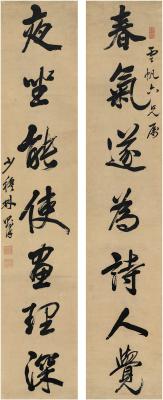 春氣遂為詩人覺
雲帆六兄屬
夜坐能使畫理深
少穆林則徐